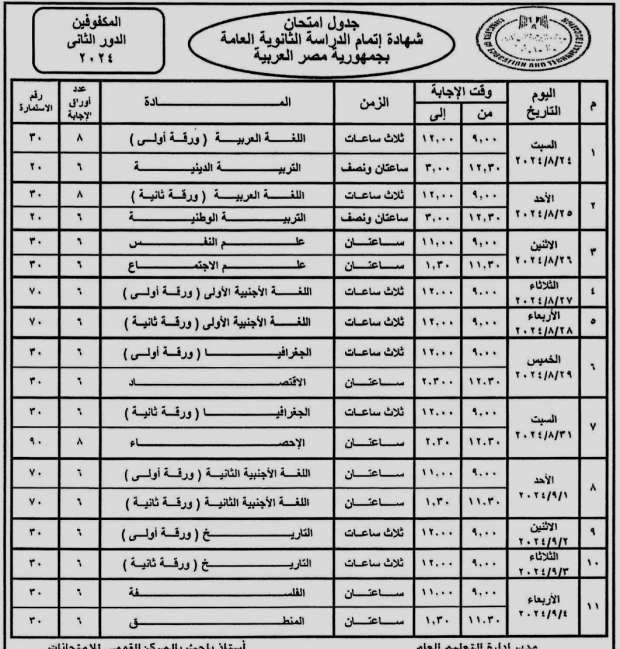 جدول امتحان
شهادة إتمام الدراسة الثانوية العامة
بجمهورية مصر العربية
المكفوفين
الدور الثانى
٢٠٢٤
م | اليوم التاريخ | وقت الإجابة من | وقت الإجابة إلى | الزمن | المـــادة | عدد أوراق الإجابة | رقم الاستمارة
١ | السبت ٢٠٢٤/٨/٢٤ | ٩,٠٠ | ١٢,٠٠ | ثلاث ساعات | اللغة العربية ( ورقة أولى ) | ٨ | ٣٠
١٢,٣٠ | ٣,٠٠ | ساعتان ونصف | التربية الدينية | ٦ | ٢٠
٢ | الأحد ٢٠٢٤/٨/٢٥ | ٩,٠٠ | ١٢,٠٠ | ثلاث ساعات | اللغة العربية ( ورقة ثانية ) | ٨ | ٣٠
١٢,٣٠ | ٣,٠٠ | ساعتان ونصف | التربية الوطنية | ٦ | ٢٠
٣ | الاثنين ٢٠٢٤/٨/٢٦ | ٩,٠٠ | ١١,٠٠ | ساعتان | علم النفس | ٦ | ٣٠
١١,٣٠ | ١,٣٠ | ساعتان | علم الاجتماع | ٦ | ٣٠
٤ | الثلاثاء ٢٠٢٤/٨/٢٧ | ٩,٠٠ | ١٢,٠٠ | ثلاث ساعات | اللغة الأجنبية الأولى ( ورقة أولى ) | ٦ | ٧٠
٥ | الأربعاء ٢٠٢٤/٨/٢٨ | ٩,٠٠ | ١٢,٠٠ | ثلاث ساعات | اللغة الأجنبية الأولى ( ورقة ثانية ) | ٦ | ٧٠
٦ | الخميس ٢٠٢٤/٨/٢٩ | ٩,٠٠ | ١٢,٠٠ | ثلاث ساعات | الجغرافيا ( ورقة أولى ) | ٦ | ٣٠
١٢,٣٠ | ٢,٣٠٠ | ساعتان | الاقتصاد | ٦ | ٣٠
٧ | السبت ٢٠٢٤/٨/٣١ | ٩,٠٠ | ١٢,٠٠ | ثلاث ساعات | الجغرافيا ( ورقة ثانية ) | ٦ | ٣٠
١٢,٣٠ | ٢,٣٠ | ساعتان | الإحصاء | ٨ | ٩٠
٨ | الأحد ٢٠٢٤/٩/١ | ٩,٠٠ | ١١,٠٠ | ساعتان | اللغة الأجنبية الثانية ( ورقة أولى ) | ٦ | ٧٠
١١,٣٠ | ١,٣٠ | ساعتان | اللغة الأجنبية الثانية ( ورقة ثانية ) | ٦ | ٧٠
٩ | الاثنين ٢٠٢٤/٩/٢ | ٩,٠٠ | ١٢,٠٠ | ثلاث ساعات | التاريخ ( ورقة أولى ) | ٦ | ٣٠
١٠ | الثلاثاء ٢٠٢٤/٩/٣ | ٩,٠٠ | ١٢,٠٠ | ثلاث ساعات | التاريخ ( ورقة ثانية ) | ٦ | ٣٠
١١ | الأربعاء ٢٠٢٤/٩/٤ | ٩,٠٠ | ١١,٠٠ | ساعتان | الفلسفة | ٦ | ٣٠
١١,٣٠ | ١,٣٠ | ساعتان | المنطق | ٦ | ٣٠
مدير إدارة التعليم العام
أستاذ باحث بالمركز القومى للامتحانات